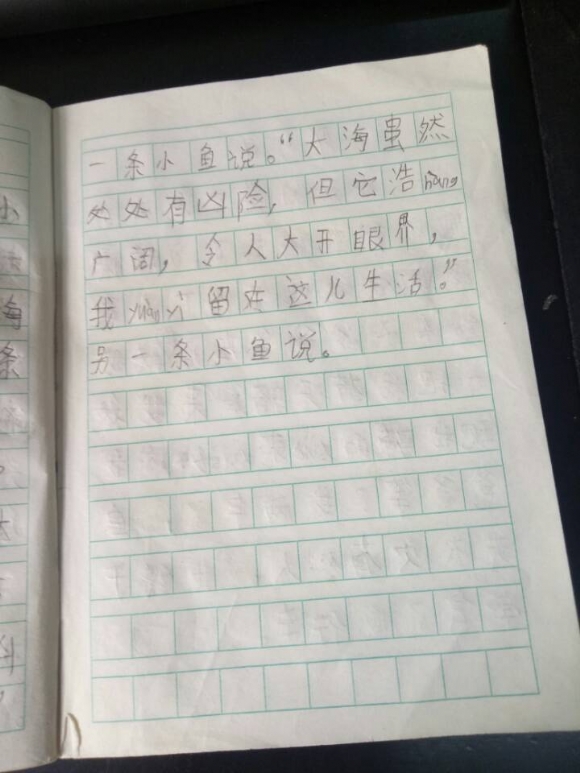 小
海
条
一条小鱼说。“大海虽然
处处有凶险，但它浩hàng
广阔，令人大开眼界，
我yuànyì留在这儿生活。”
另一条小鱼说。